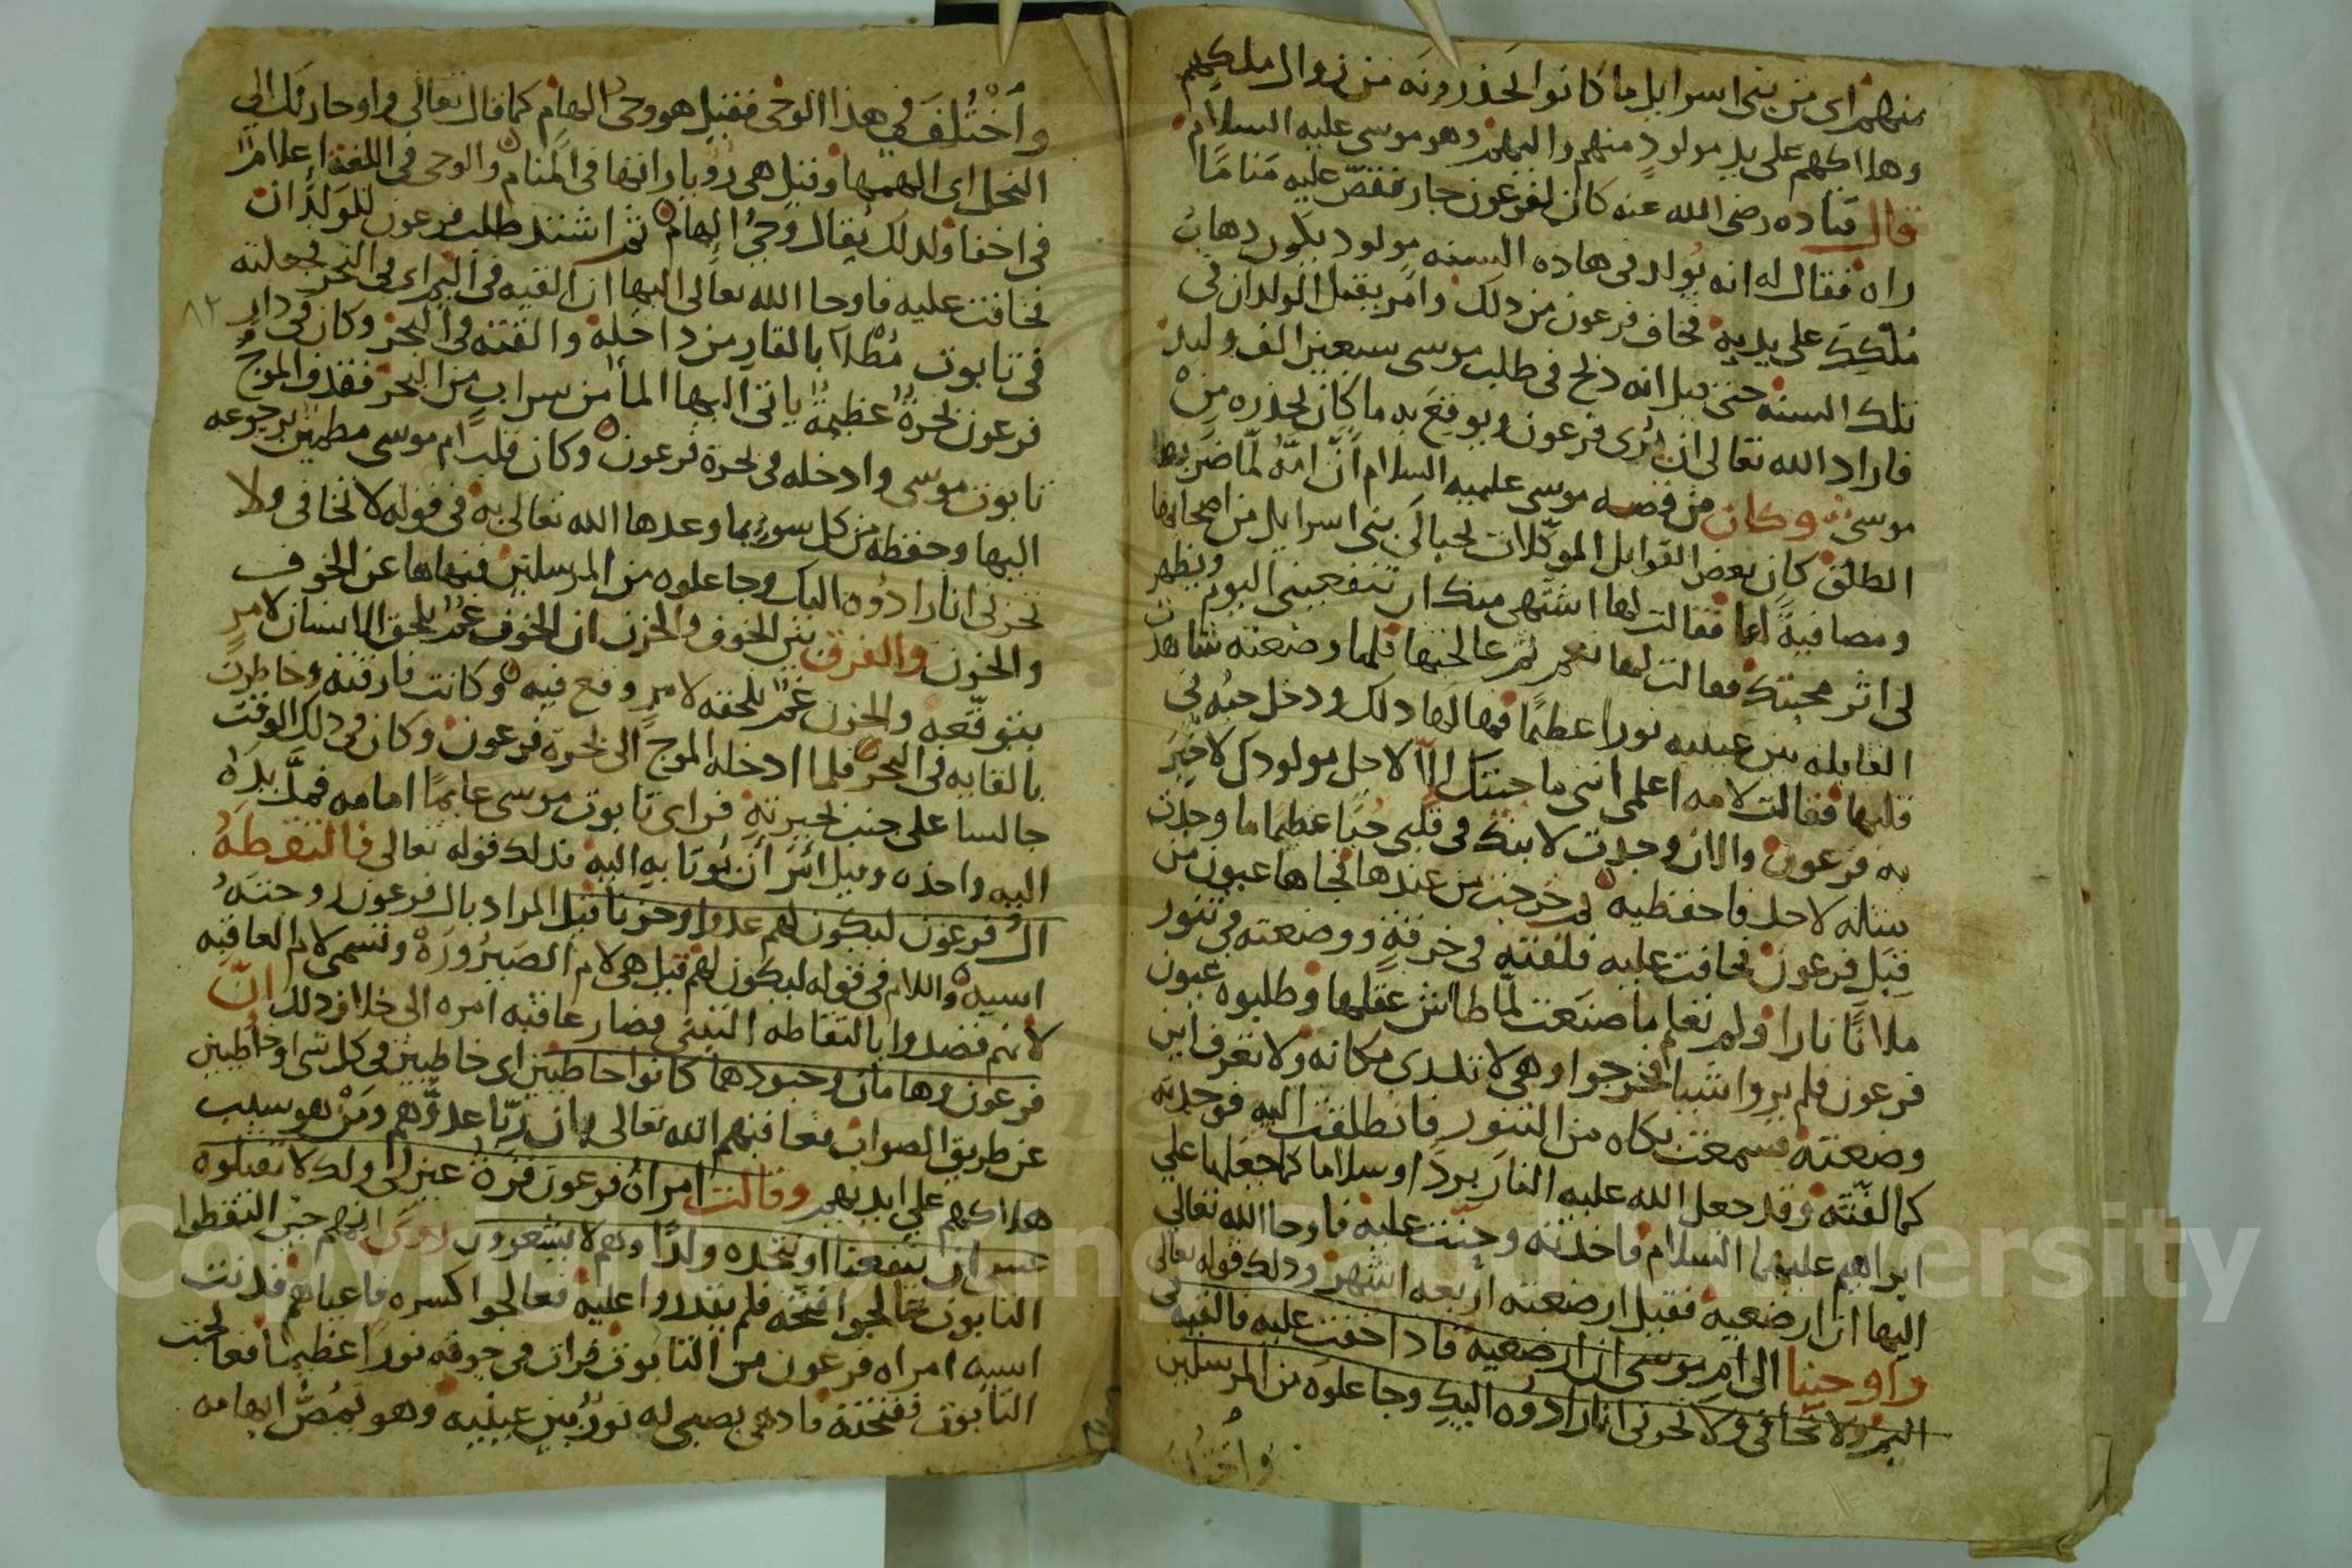 منهم اى من بنى اسرايل ما كانوا يحذرونه من زوال ملكهم
وهلاكهم على يد مولودٍ منهم واليهم وهو موسى عليه السلام
قال قتاده رضى الله عنه كان لفرعون جار فقصّ عليه مَنامًا
راه فقال له انه يُولد فى هاذه السنه مولود يكون دهابُ
مُلككَ على يديه فخاف فرعون من دلك وامر بقتل الولدان فى
تلك السنه حتى قيل انه دبح فى طلب موسى سبعين الف وليد
فاراد الله تعالى ان يُرى فرعون ويوقعَ به ما كان يحذره مِنْ
موسى وكان من قصه موسى عليه السلام انّ امّهُ لمّا ضَربها
الطلق كان بعض القوابل الموكّلات بحبالَى بنى اسرايل من اصحابها
ومصافيةً لها فقالت لها اشتهى منك ان تنفعينى اليوم ويظهر
لى اثر محبتك فقالت لها نعم ثم عالجتها فلما وضعته شاهدت
القابله بين عينيه نورا عظيمًا فهالها دلك ودخل حبُه فى
قلبها فقالت لامه اعلمى اننى ما جئتك الّا لاجل مولودك لاخبرَ
به فرعون والان وجدت لابنك فى قلبى حُبًا عظيما ما وجدت
مثله لاحد فاحفظيه ثم خرجت من عندها فجاها عيون من
قِبَل فرعون فخافت عليه فلفته فى خرقةٍ ووضعته فى تنور
ملانًا نارا ولم تعلم ما صنَعت لمّا طاش عقلها وطلبوه عيون
فرعون فلم يروا شيبا فخرجوا وهى لا تدرى مكانه ولا تعرف اين
وضعته فسمعت بكاه من التنور فانطلقت اليه فوجدته
كما لفّته وقد جعل الله عليه النار بردًا وسلاما كما جعلها على
ابراهيم عليهما السلام فاخدته وحنّت عليه فاوحا الله تعالى
اليها ان ارضعيه فقيل ارضعته اربعه اشهر ودلك قوله تعالى
واوحينا الى ام موسى ان ارضعيه فادا خفت عليه فالقيه فى
اليم ولا تخافى ولا تحزنى انا رادّوه اليك وجاعلوه من المرسلين
واختلف
واُخْتُلفَ فى هذا الوحى فقيل هو وحى الهام كما قال تعالى واوحا ربك الى
النحل اى الهمها وقيل هى رُويا راتها فى المنام والوحى فى اللغة اعلامٌ
فى اخفا ولدلك يُقال وحىُ الهام ثم اشتد طلب فرعون للوَلدان
فخافت عليه فاوحا الله تعالى اليها ان القيه فى اليم اى فى البحر فجعلته
فى تابوت مُطْلا بالقار من داخله والقته فى البحر وكان فى دار
٨٢
فرعون بحرةٌ عظيمةٌ ياتى اليها الما من سرابٍ من البحر فقدف الموجُ
تابوت موسى وادخله فى بحرة فرعون وكان قلب ام موسى مطمين برجوعه
اليها وحفظه من كل سو بما وعدها الله تعالى به فى قوله لا تخافى ولا
تحزنى انا رادّوه اليك وجاعلوه من المرسلين فنهاها عن الخوف
والحزن والفرق بين الخوف والحزن ان الخوف غمٌ يلحق الانسان لامرٍ
يتوقّعه والحزن غمٌ يلحقه لامرٍ وقع فيه وكانت فارقته وخاطرت
بالقايه فى البحر فلما ادخله الموج الى بحرة فرعون وكان فى دلك الوقت
جالسا على جنب بحيرته فراى تابوت موسى عايمًا امامه فمدَّ يدَهُ
اليه واخده وقيل امَر أن يُوتا به اليه فدلك قوله تعالى فالتقطهُ
الُ فرعون ليكون لهم عدوا وحزنا قيل المراد بال فرعون زوجتهُ
اسيه واللام فى قوله ليكون لهم قيل هى لام الصَيرُورَة وتسمى لام العاقبه
لانهم قصدوا بالتقاطه التبنى فصار عاقبه امره الى خلاف دلك انّ
فرعون وهامان وجنودهما كانوا خاطيين اى خاطيين فى كل شى او خاطيين
عن طريق الصواب فعاقبهم الله تعالى بان ربّا عدوّهم ومَنْ هو سبب
هلاكهم على ايديهم وقالت امراتُ فرعون قرةُ عينٍ لى ولك لا تقتلوه
عسى ان ينفعنا او نتخده ولدًا وهم لا يشعرون روى انهم حين التقطوا
التابوت عالجوا فتحه فلم يقدروا عليه فعالجوا كسره فاعياهم فدنت
اسيه امراه فرعون من التابوت فرات فى جوفه نورا عظيما فعالجت
التابوت ففتحته فادهى بصبى له نورٌ بين عينيه وهو يمُصُّ ابهامه
Copyright © King Saud University